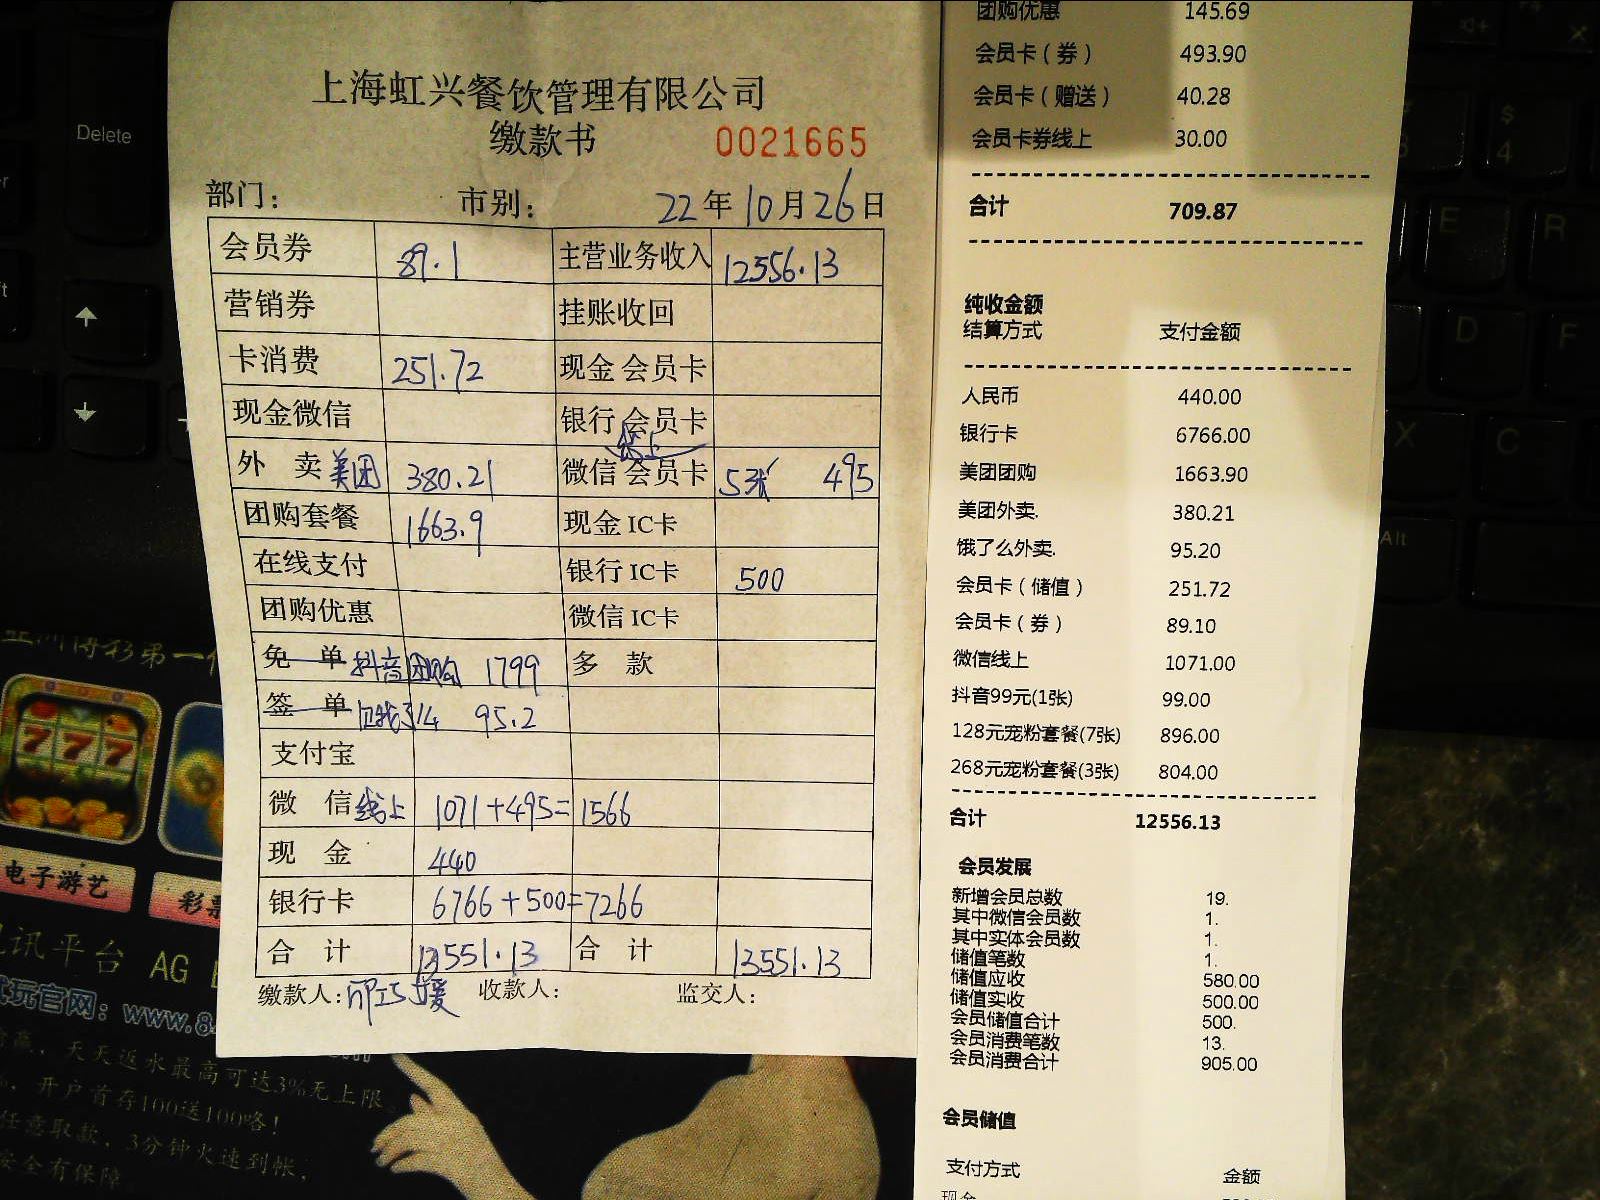 上海虹兴餐饮管理有限公司
缴款书 0021665
部门： 市别： 22年10月26日
会员券 89.1 主营业务收入 12556.13
营销券 挂账收回
卡消费 251.72 现金会员卡
现金微信 银行会员卡
线上
外卖美团 380.21 微信会员卡 5张 495
团购套餐 1663.9 现金IC卡
在线支付 银行IC卡 500
团购优惠 微信IC卡
免单 抖音团购 1799 多款
签单 95.2
支付宝
微信线上 1071+495=1566
现金 440
银行卡 6766+500=7266
合计 13551.13 合计 13551.13
缴款人： 收款人： 监交人：
团购优惠 145.69
会员卡（券） 493.90
会员卡（赠送） 40.28
会员卡券线上 30.00
合计 709.87
纯收金额
结算方式 支付金额
人民币 440.00
银行卡 6766.00
美团团购 1663.90
美团外卖. 380.21
饿了么外卖. 95.20
会员卡（储值） 251.72
会员卡（券） 89.10
微信线上 1071.00
抖音99元(1张) 99.00
128元宠粉套餐(7张) 896.00
268元宠粉套餐(3张) 804.00
合计 12556.13
会员发展
新增会员总数 19.
其中微信会员数 1.
其中实体会员数 1.
储值笔数 1.
储值应收 580.00
储值实收 500.00
会员储值合计 500.
会员消费笔数 13.
会员消费合计 905.00
会员储值
支付方式 金额
现金
Delete
$
4
E
R
D
F
X
C
Alt
电子游艺
彩票
讯平台 AG
玩官网：www.8
天天返水最高可达3%无上限
开户首存100送100咯！
任意取款，3分钟火速到帐，
安全有保障